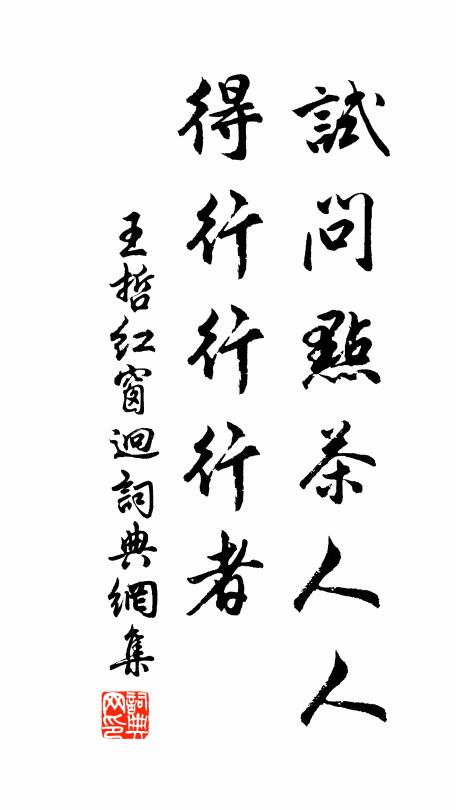 試問點茶人人
得行行行者
王哲紅窗迥詞典網集
詞典
网印